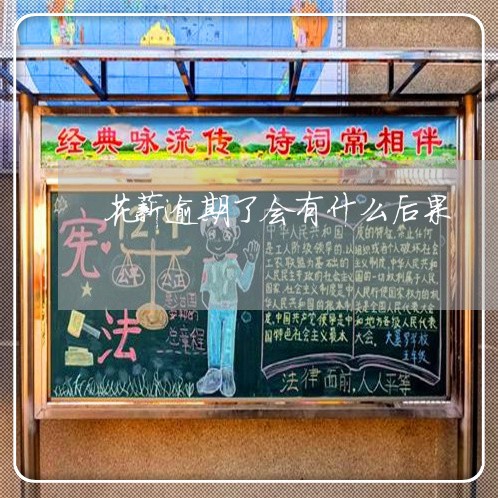 经典咏流传 诗词常相伴
花薪逾期了会有什么后果
宪
法
公平 公正
总章程
中华人民共和国
是工人阶级领导的,以
工农联盟为基础的
人民民主专政的社会主义
国家。社会主义制度是中
华人民共和国的根本制
度。中国共产党领导是中
国特色社会主义最本
质的特征。禁止任何
组织或者个人破坏社会
主义制度。中华人民共和
国的一切权利属于人民。
人民行使国家权力的机
关是全国人民代表大会
和地方各级人民代表
大会。
五年级
法律面前,人人平等